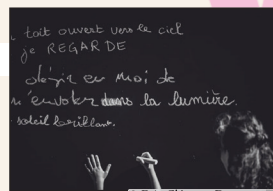 toit ouvert vers le ciel
je REGARDE
désir en moi de
m'envoler dans la lumière.
soleil brillant.